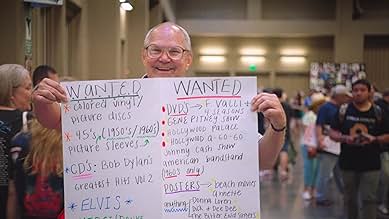 WANTED
* colored vinyl/
picture discs
* 45's (1950's/1960s)
picture sleeves
* CD's: Bob Dylan's
Greatest Hits Vol. 2
* ELVIS
WANTED
DVD'S → F. VALLI +
4 SEASONS
GENE PITNEY SHOW
HOLLYWOOD PALACE
HOLLYWOOD A-GO-GO
Johnny Cash show
american bandstand
(1960s only)
POSTERS → beach movies
annette
anything
Donna Loren
Dick + Dee Dee